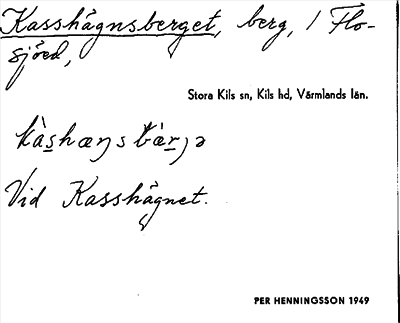 Kasshägnsberget, berg, 1 Flo-
sjöed,
Stora Kils sn, Kils hd, Värmlands län.
Vid Kasshägnet.
PER HENNINGSSON 1949